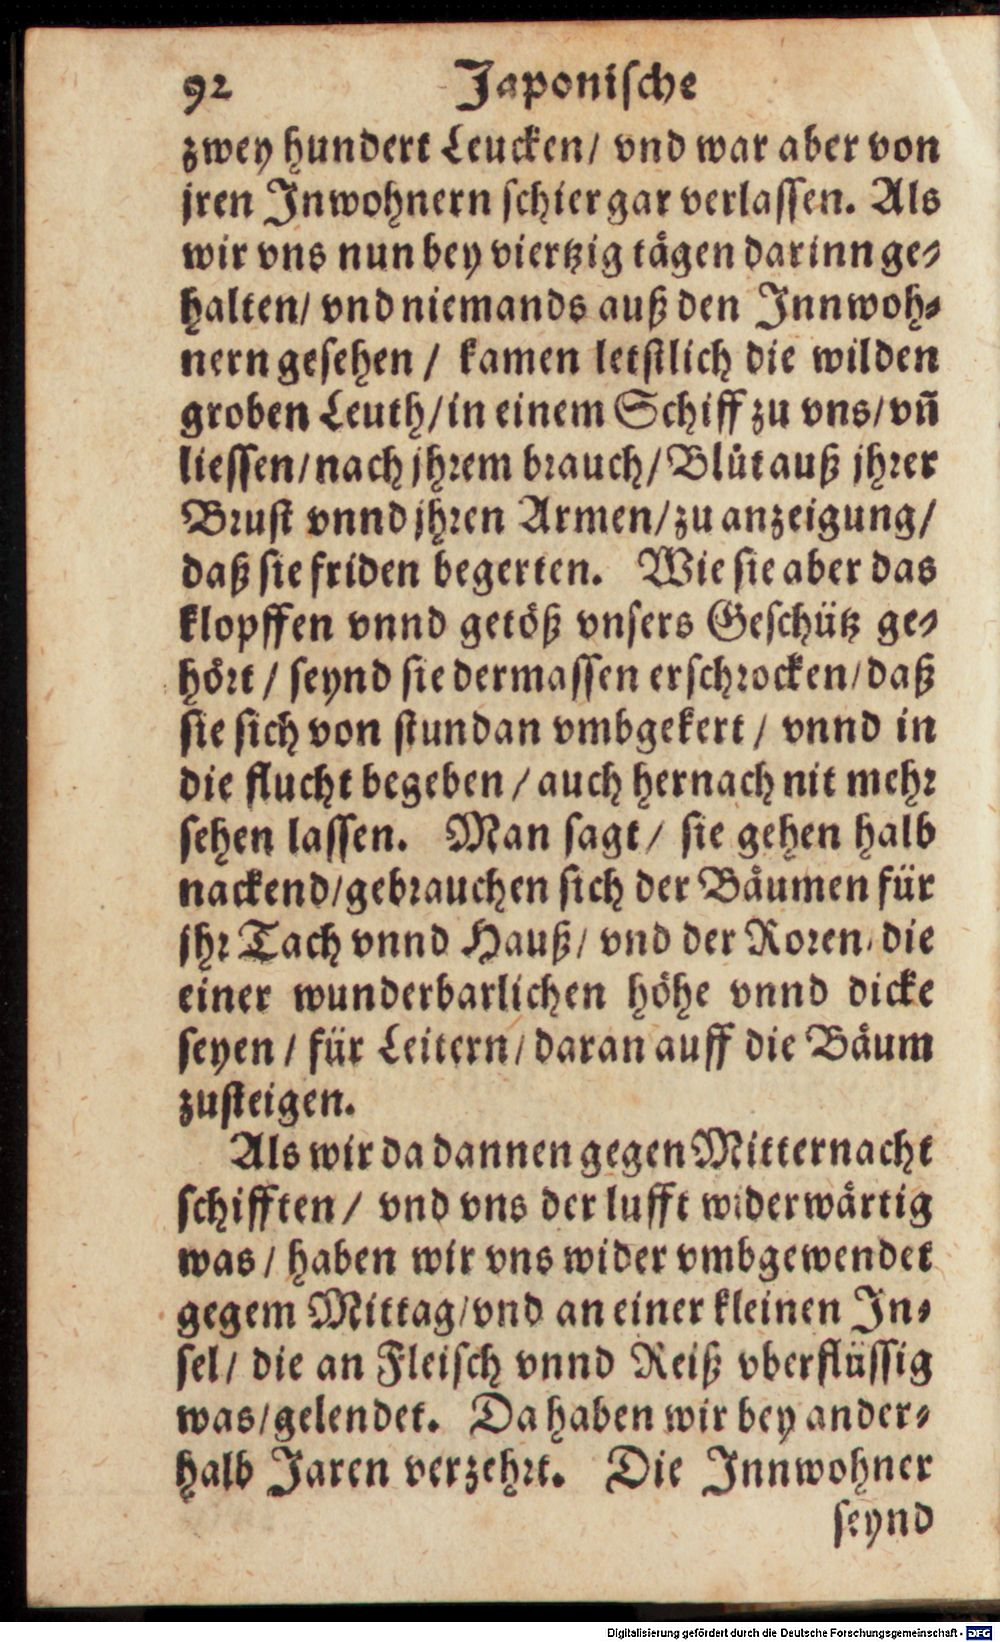 92 Japonische
zwey hundert Leucken/ vnd war aber von
jren Inwohnern schier gar verlassen. Als
wir vns nun bey viertzig tågen darinn ge-
halten/ vnd niemands auß den Innwoh-
nern gesehen / kamen letstlich die wilden
groben Leuth/ in einem Schiff zu vns/ vñ
liessen/ nach jhrem brauch/ Blůt auß jhrer
Brust vnnd jhren Armen/ zu anzeigung/
daß sie friden begerten. Wie sie aber das
klopffen vnnd getöß vnsers Geschütz ge-
hört / seynd sie dermassen erschrocken/ daß
sie sich von stundan vmbgekert / vnnd in
die flucht begeben / auch hernach nit mehr
sehen lassen. Man sagt/ sie gehen halb
nackend/ gebrauchen sich der Båumen für
jhr Tach vnnd Hauß/ vnd der Roren, die
einer wunderbarlichen höhe vnnd dicke
seyen / für Leitern/ daran auff die Båum
zusteigen.
Als wir da dannen gegen Mitternacht
schifften / vnd vns der lufft widerwårtig
was / haben wir vns wider vmbgewendet
gegem Mittag/ vnd an einer kleinen In-
sel/ die an Fleisch vnnd Reiß vberflüssig
was/ gelendet. Da haben wir bey ander-
halb Jaren verzehrt. Die Innwohner
seynd
Digitalisierung gefördert durch die Deutsche Forschungsgemeinschaft - DFG